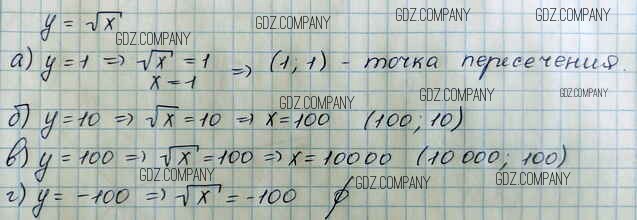 y = √x
GDZ.COMPANY GDZ.COMPANY GDZ.COMPANY
а) y=1 => √x = 1 => (1; 1) - точка пересечения.
x = 1
GDZ.COMPANY GDZ.COMPANY GDZ.COMPANY
б) y=10 => √x = 10 => x=100 (100; 10)
в) y=100 => √x = 100 => x=10000 (10 000; 100)
GDZ.COMPANY GDZ.COMPANY GDZ.COMPANY
г) y= -100 => √x = -100 ∅